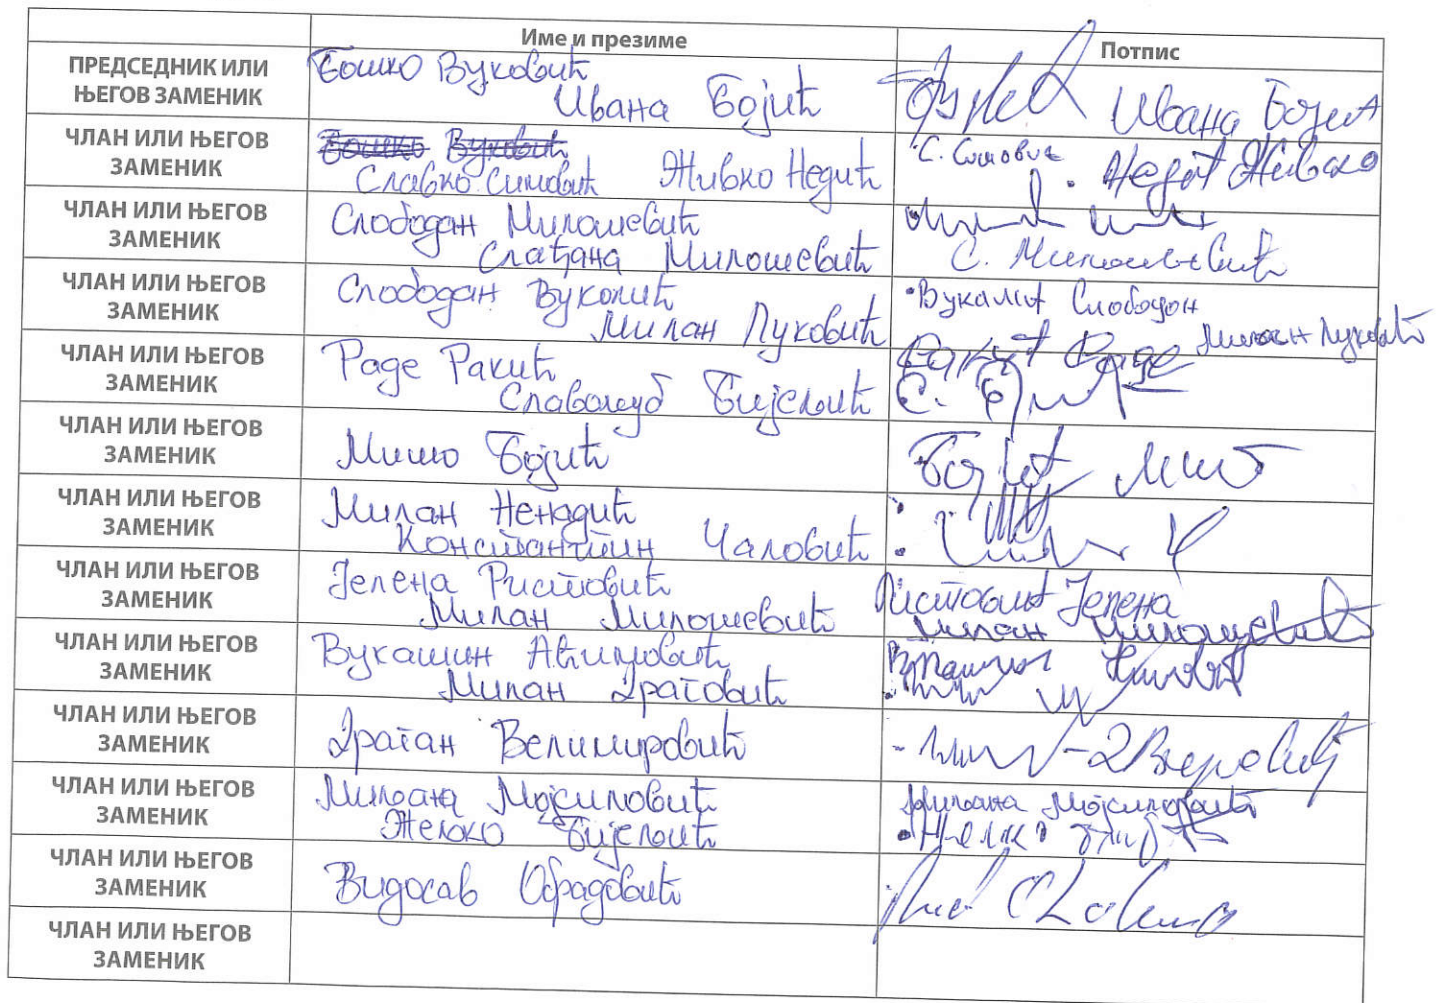 Име и презиме Потпис
ПРЕДСЕДНИК ИЛИ
ЊЕГОВ ЗАМЕНИК
Бошко Вуковић
Ивана Бојић
Ивана Бојић
ЧЛАН ИЛИ ЊЕГОВ
ЗАМЕНИК
Бошко Вуковић
Славко Симовић Живко Недић
С. Симовић Недић Живко
ЧЛАН ИЛИ ЊЕГОВ
ЗАМЕНИК
Слободан Милошевић
Слађана Милошевић
С. Милошевић
ЧЛАН ИЛИ ЊЕГОВ
ЗАМЕНИК
Слободан Вуколић
Милан Луковић
Вукалић Слободон
Милан Луковић
ЧЛАН ИЛИ ЊЕГОВ
ЗАМЕНИК
Раде Ракић
Славољуб Бијелић
Ракић Раде
С.
ЧЛАН ИЛИ ЊЕГОВ
ЗАМЕНИК
Мишо Бојић
Бојић Мишо
ЧЛАН ИЛИ ЊЕГОВ
ЗАМЕНИК
Милан Ненадић
Константин Чаловић
ЧЛАН ИЛИ ЊЕГОВ
ЗАМЕНИК
Јелена Ристовић
Милан Милошевић
Ристовић Јелена
Милан Милошевић
ЧЛАН ИЛИ ЊЕГОВ
ЗАМЕНИК
Вукашин Аћимовић
Милан Драговић
ЧЛАН ИЛИ ЊЕГОВ
ЗАМЕНИК
Драган Велимировић
ЧЛАН ИЛИ ЊЕГОВ
ЗАМЕНИК
Миљана Мојсиловић
Жељко Бијелић
Миљана Мојсиловић
ЧЛАН ИЛИ ЊЕГОВ
ЗАМЕНИК
Видосав Обрадовић
ЧЛАН ИЛИ ЊЕГОВ
ЗАМЕНИК